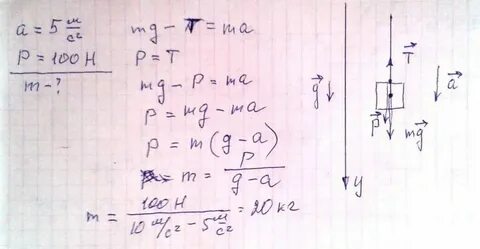 a = 5 м/с²
P = 100 Н
m - ?
mg - T = ma
P = T
mg - P = ma
P = mg - ma
P = m(g - a)
m = P/(g - a)
m = 100 Н/(10 м/с² - 5 м/с²) = 20 кг
g
T
a
P
mg
y